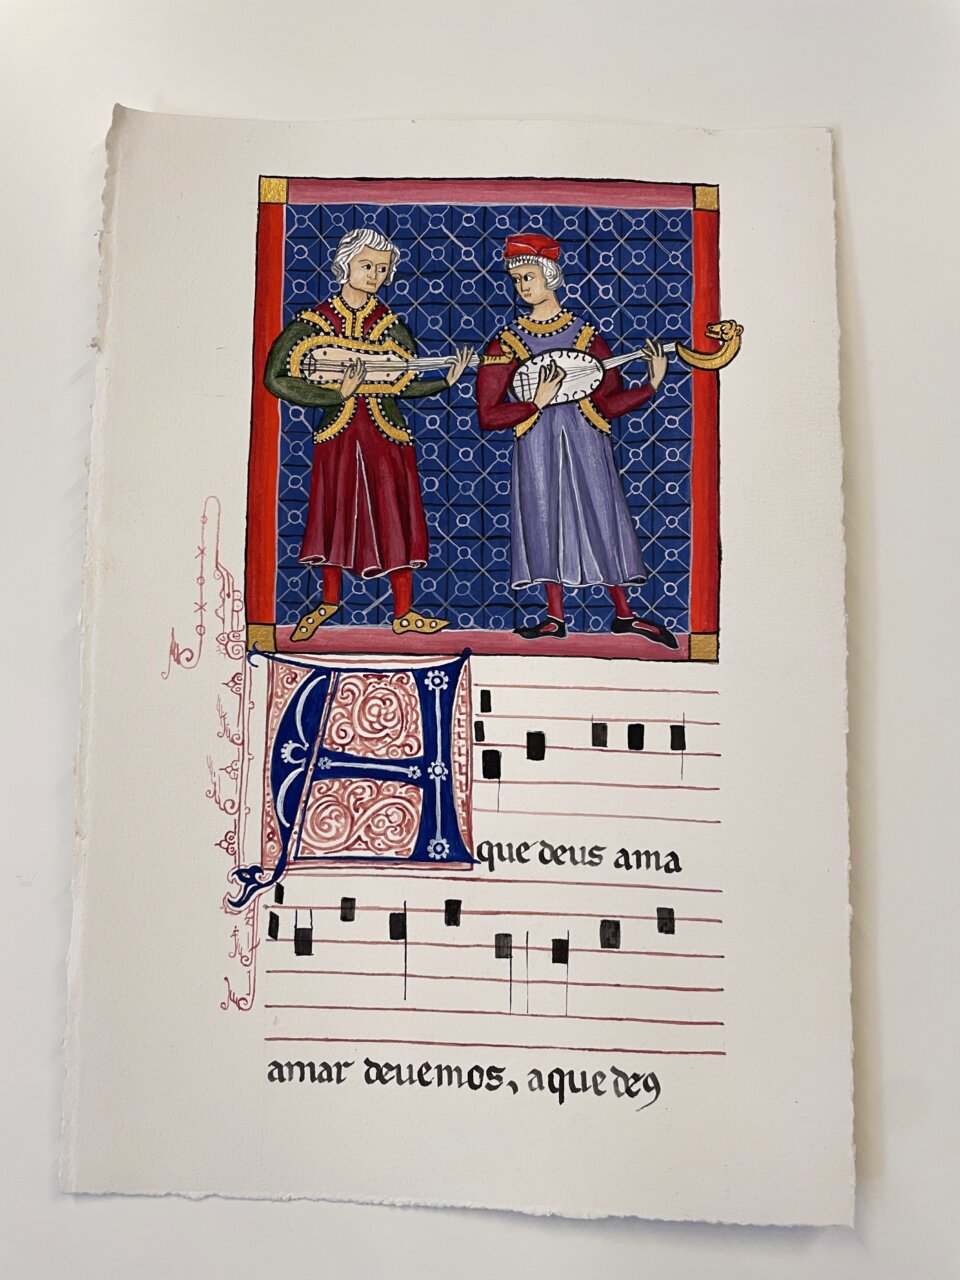 A que deus ama
amar deuemos, a que de9